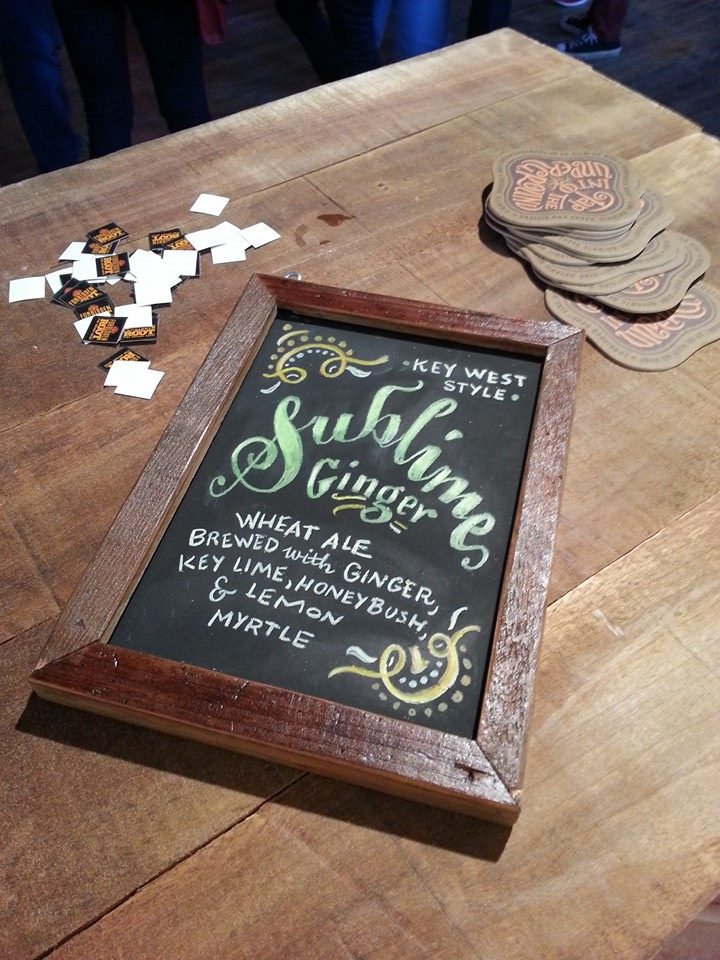 • KEY WEST
STYLE •
Sublime
Ginger
WHEAT ALE
BREWED with GINGER,
KEY LIME, HONEYBUSH,
& LEMON
MYRTLE
INTO
THE
UNDER
GROUND
FORBIDDEN
ROOT